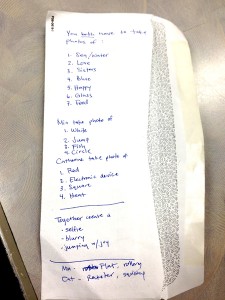 You both have to take
photos of :
1. Sea/water
2. Love
3. Sisters
4. Blue
5. Happy
6. Glass
7. Food
Min take photo of
1. White
2. Jump
3. Fish
4. Circle
Catherine take photo of
1. Red
2. Electronic device
3. Square
4. Heart
Together create a
- selfie
- blurry
- jumping w/joy
Ma - Plat, rottery
Cat -